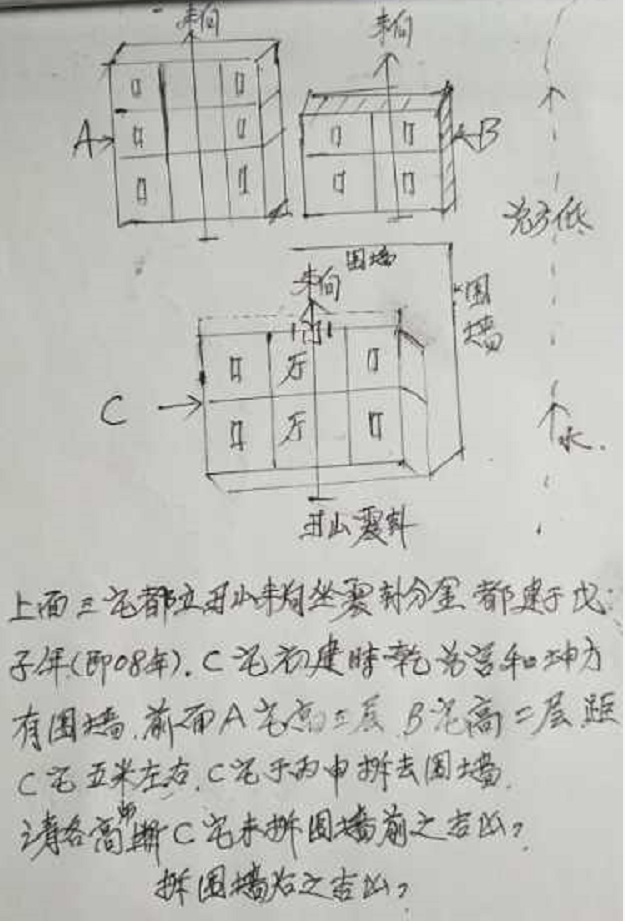 来向
来向
A
B
兑方低
围墙
来向
围墙
C
厅
厅
水.
丑山震卦
上面三宅都立丑山未向坐震卦分金都建于戊
子年(即08年).C宅初建时乾兑宫和坤方
有围墙.前面A宅高三层B宅高二层距
C宅五米左右.C宅于丙申拆去围墙.
请各高师断C宅未拆围墙前之吉凶?
拆围墙后之吉凶?